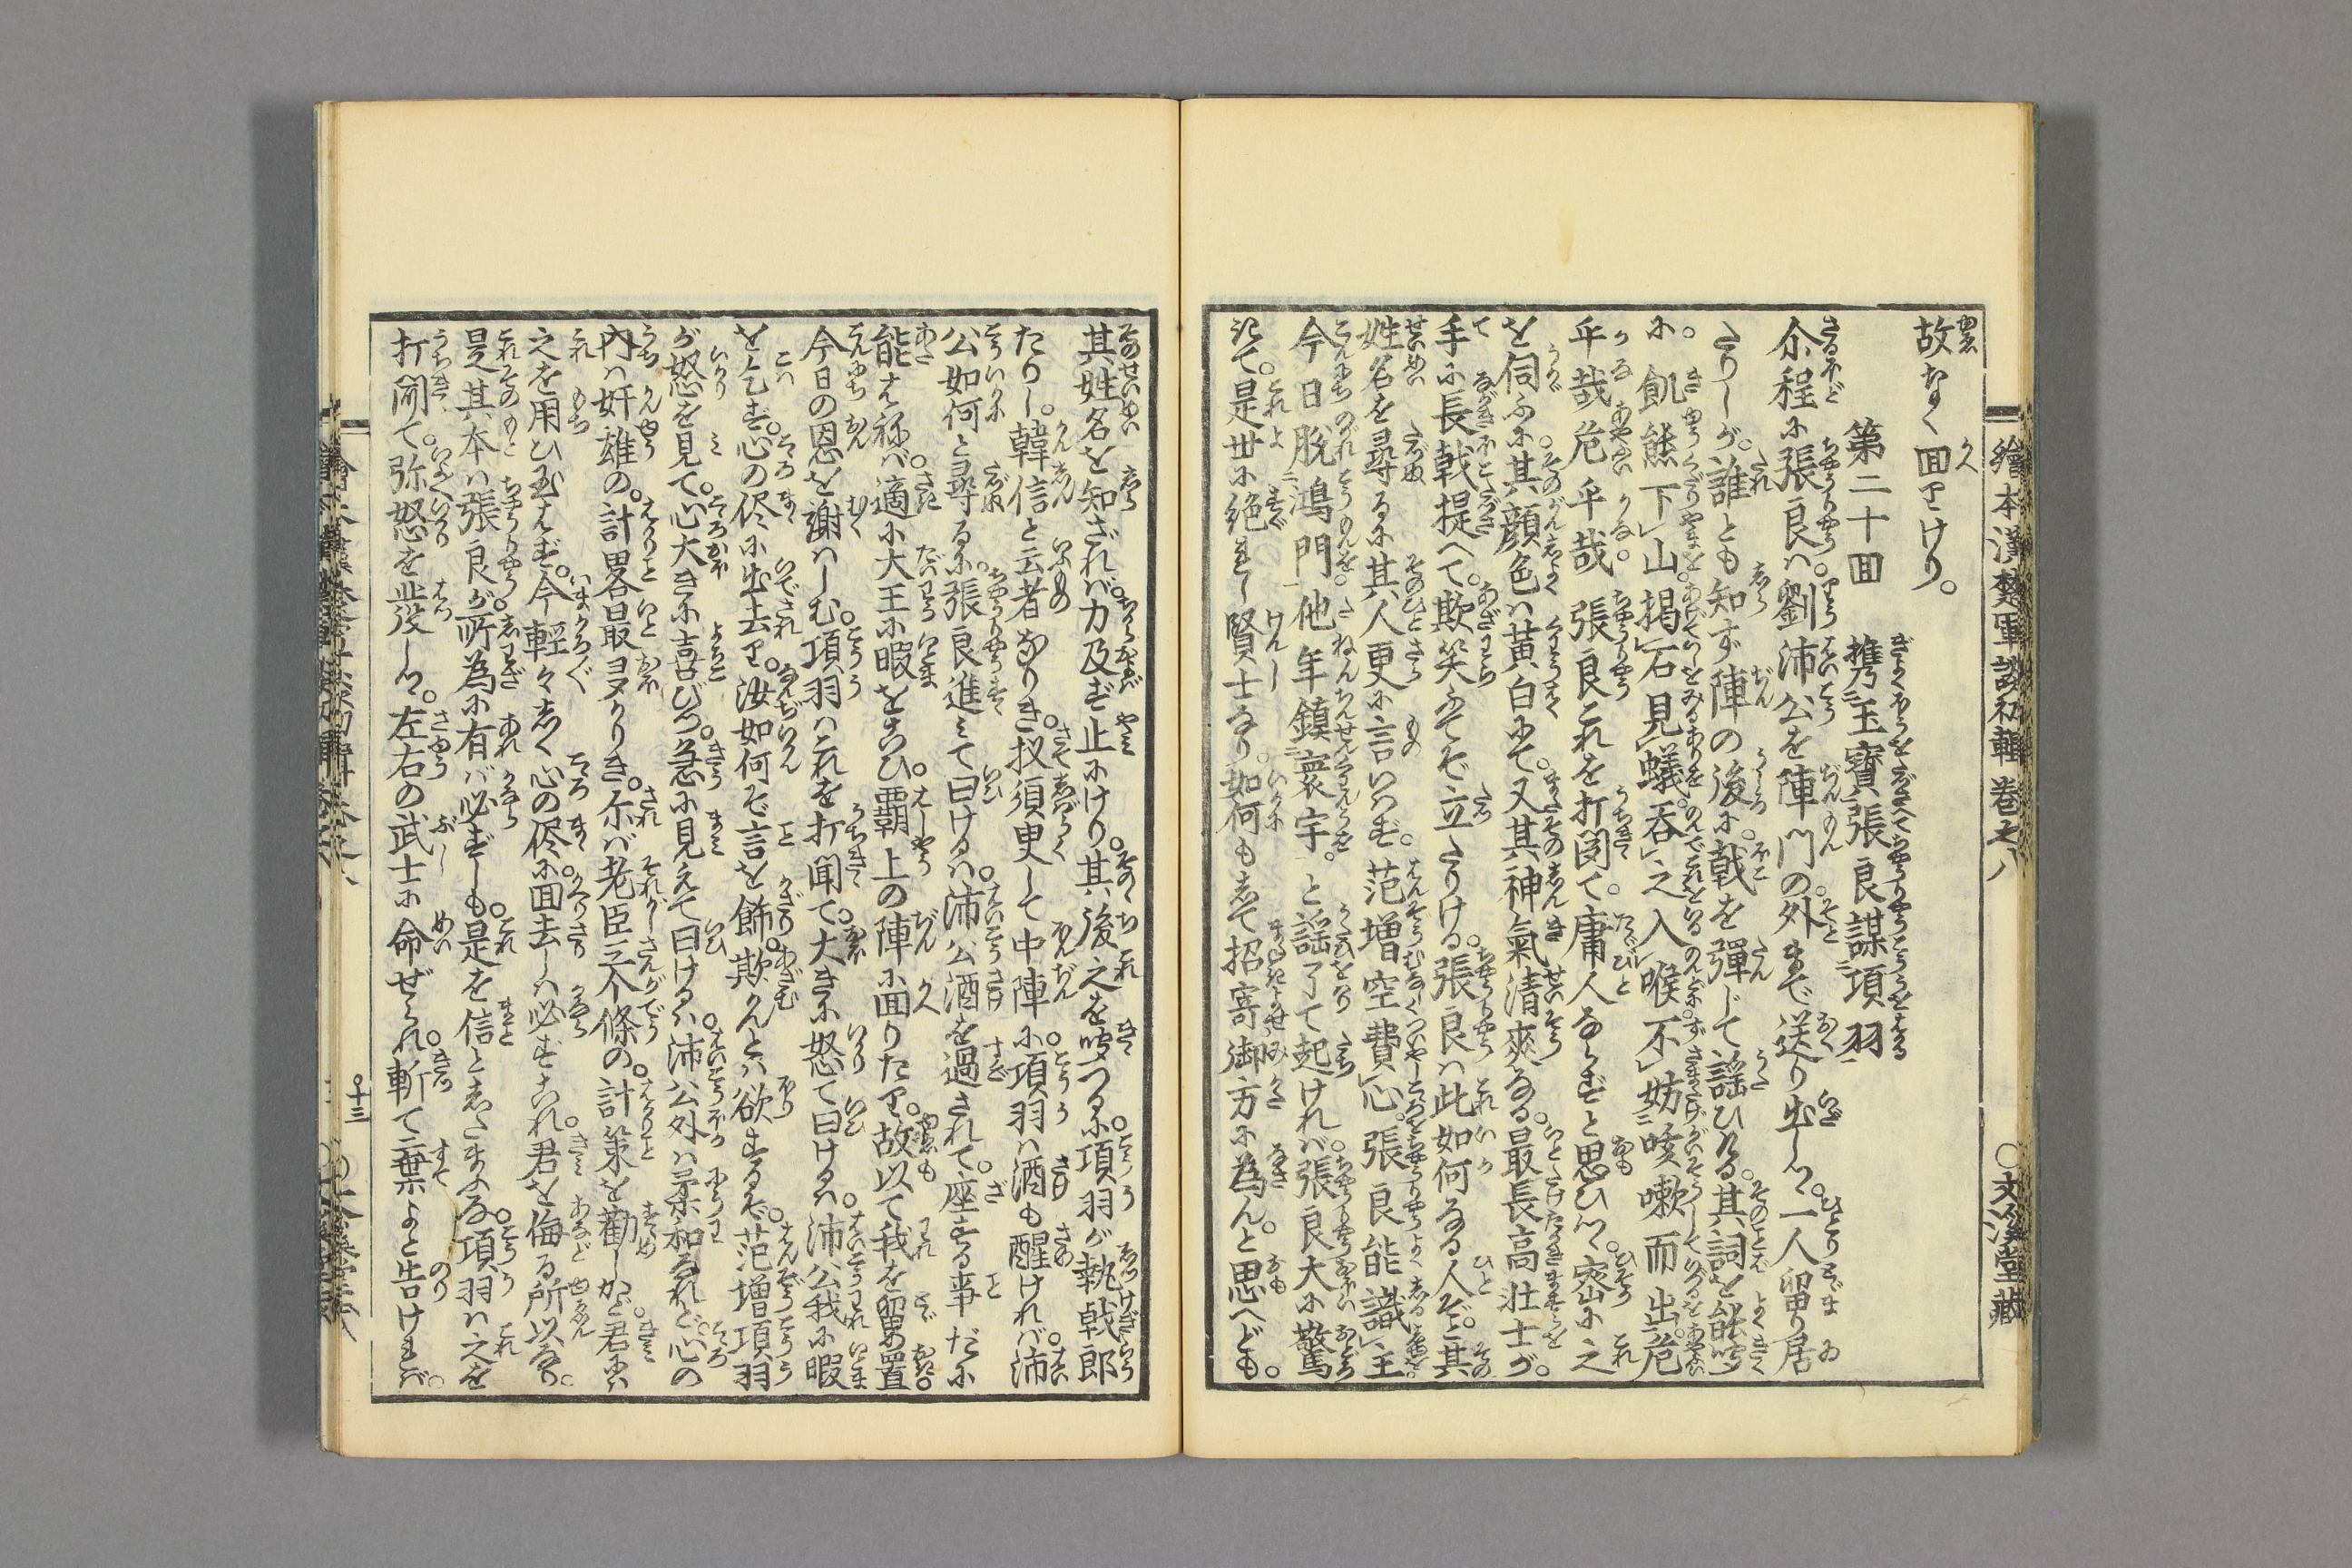 繪本漢楚軍談初輯 巻之八 〇文溪堂藏
故なく囬りけり。
第二十囬 携玉寶張良謀項羽
尒程に張良ハ。劉沛公を陣門の外まで送り出しつ。一人留り居
たりしが。誰とも知ず陣の後に。戟を彈じて謡ひける。其詞を能聴
に。飢熊下山掲石見蟻。呑之入喉不妨咳嗽而出。危
乎哉危乎哉。張良これを打関て。庸人ならずと思ひつ。密に之
を伺ふに。其顔色ハ黄白にて。又其神氣清爽なる。最長高壮士が。
手に長戟提へて。欺笑ふてぞ立たりける。張良ハ此如何なる人ぞと其
姓名を尋るに其人更に言ハず。范増空費心。張良能識主
今日脫鴻門他年鎮寰宇。と謡了て起けれバ。張良大に驚
きて。是世に絶たる賢士なり。如何もして招寄御方に為んと思へども。
其姓名を知ざれバ。力及ず止にけり。其後之を聴つるに。項羽が執戟郎
たりし。韓信と云者なりき。扠須臾して中陣に。項羽ハ酒も醒けれバ。沛
公如何と尋るに。張良進ミて曰けるハ。沛公酒を過されて。座する事だに
能ハねバ。適に大王に暇をこひ。覇上の陣に囬りたり。故以て我を留め置。
今日の恩を謝ハしむ。項羽ハこれを打聞て。大きに怒て曰けるハ。沛公我に暇
を乞ず。心の侭に出去り。汝如何ぞ言を飾。欺んとハ欲するぞ。范増項羽
が怒を見て。心大きに喜びつ。急に見えて曰けるハ。沛公外ハ柔和なれど。心の
内ハ奸雄の。計畧最多かりき。尓バ老臣三个條の。計策を勸しかど。君にハ
之を用ひ玉ハず。今輕々しく心の侭に。囬去しハ必ずこれ。君を侮る所以なり。
是其本ハ張良が。所為に有バ必ずしも。是を信としたまふな。項羽ハ之を
打聞て。弥怒を発しつ。左右の武士に命ぜられ。斬て棄よと告けれバ。
十三